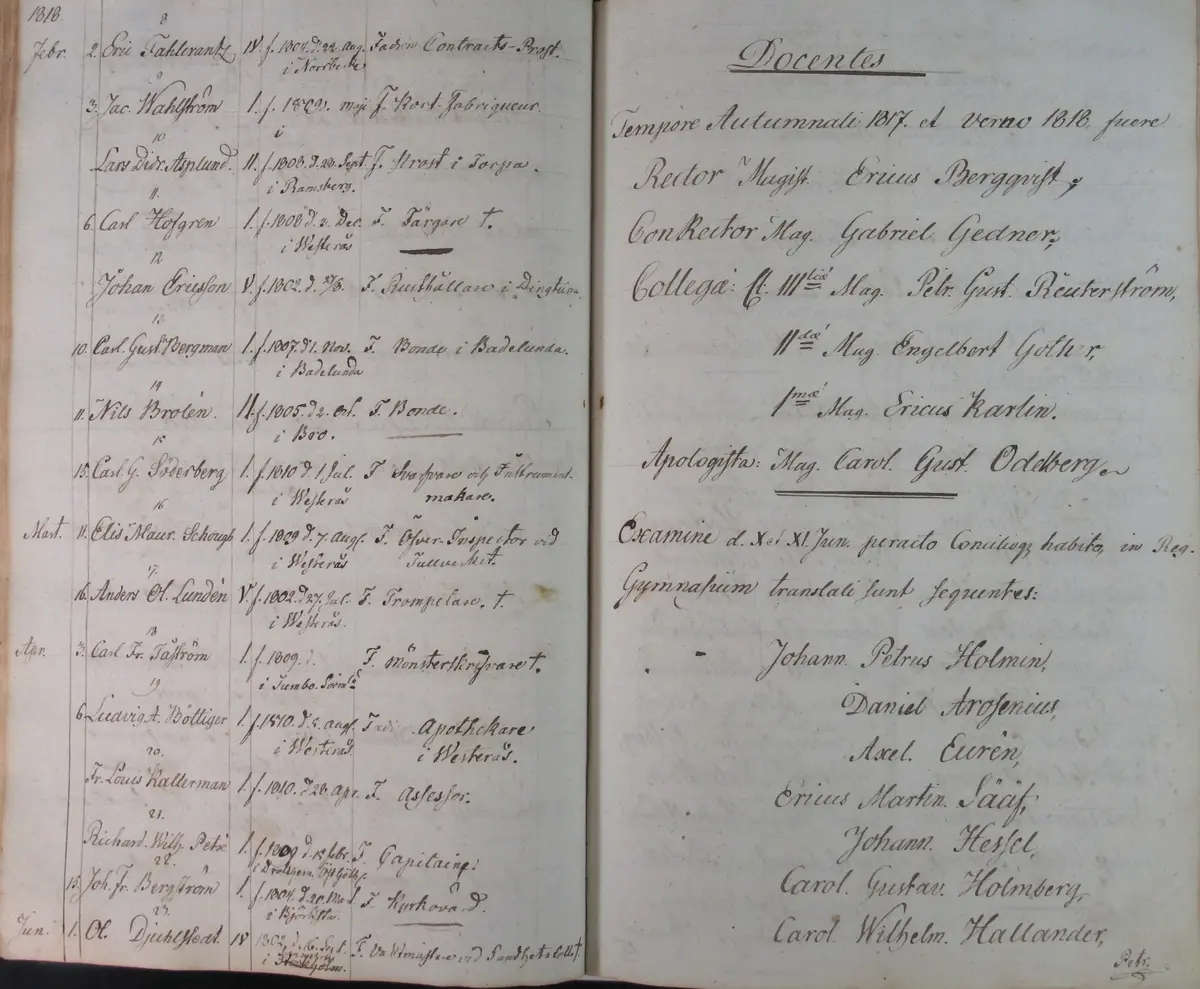 1818
8
Febr. 2. Eric Fahlcrantz IV f. 1804. d. 22. Aug. Fadren Contracts-Prost.
i Norrbecke
9
3. Jac. Wahlström I. f. 1809. maji F. Kort-Fabriqueur.
i
10
Lars Didr. Asplund. II. f. 1808. d. 28. Sept. F. Prost i Torpa.
i Ramsberg.
11
6. Carl Hofgren I. f. 1808 d. 2. Dec. F. Färgare †.
i Westerås
12
Johan Ericsson V. f. 1802. d. F. Rusthållare i Dingtuna
13
10. Carl Gust. Bergman I. f. 1807. d. 1. Nov. F. Bonde i Badelunda.
i Badelunda
14
11. Nils Brolén. II. f. 1805. d. 2. Oct. F. Bonde.
i Bro.
15
15. Carl G. Söderberg I. f. 1810 d. 1 Jul. F. Svarfvare och Instrument-
i Westerås makare.
16
Mart. 11. Elis Maur. Schough I. f. 1809 d. 7. Aug. F. Öfver-Inspector vid
i Westerås Tullverket.
17
16. Anders Ol. Lundén V. f. 1802. d. 27. Jul. F. Trompetare. †
i Westerås.
18
Apr. 3. Carl Fr. Taström I. f. 1809. d. F. Mönsterskrifvare †.
i Jumbo. Sörml:d
19
6. Ludvig A. Böttiger I. f. 1810. d. 5. Aug. Fad. Apothekare
i Westerås i Westerås.
20.
Fr. Louis Kallerman I. f. 1810. d. 28. Apr. F. Assessor.
21.
Richard. Wilh. Petré I. f. 1809 d. 15. Febr. F. Capitaine.
22. i Östgöth.
15. Joh. Fr. Bergström I. f. 1804. d. 20. Mart F. Kyrkovärd.
23. i Björksta.
Jun. 1. Ol. Djuhlstedt. IV 1802. d. 16. Sept. F. Vaktmästare vid Sundhets Coll. †.
i Stockholm.
Docentes
Tempore Autumnali 1817. et verno 1818 fuere
Rector Magist. Ericus Bergqvist,
ConRector Mag. Gabriel Gedner,
Collegæ: Cl. III tiæ Mag. Petr. Gust. Reuterström,
II dæ Mag. Engelbert Gother,
I mæ Mag. Ericus Karlin.
Apologista: Mag. Carol. Gust. Oddberg.
Examine d. X et XI. Jun. peracto Concilioq; habito, in Reg.
Gymnasium translati sunt sequentes:
Johann. Petrus Holmin,
Daniel Arosenius,
Axel. Eurén,
Ericus Martin. Sääf,
Johann. Hessel,
Carol. Gustav. Holmberg,
Carol. Wilhelm. Hallander,
Petr.